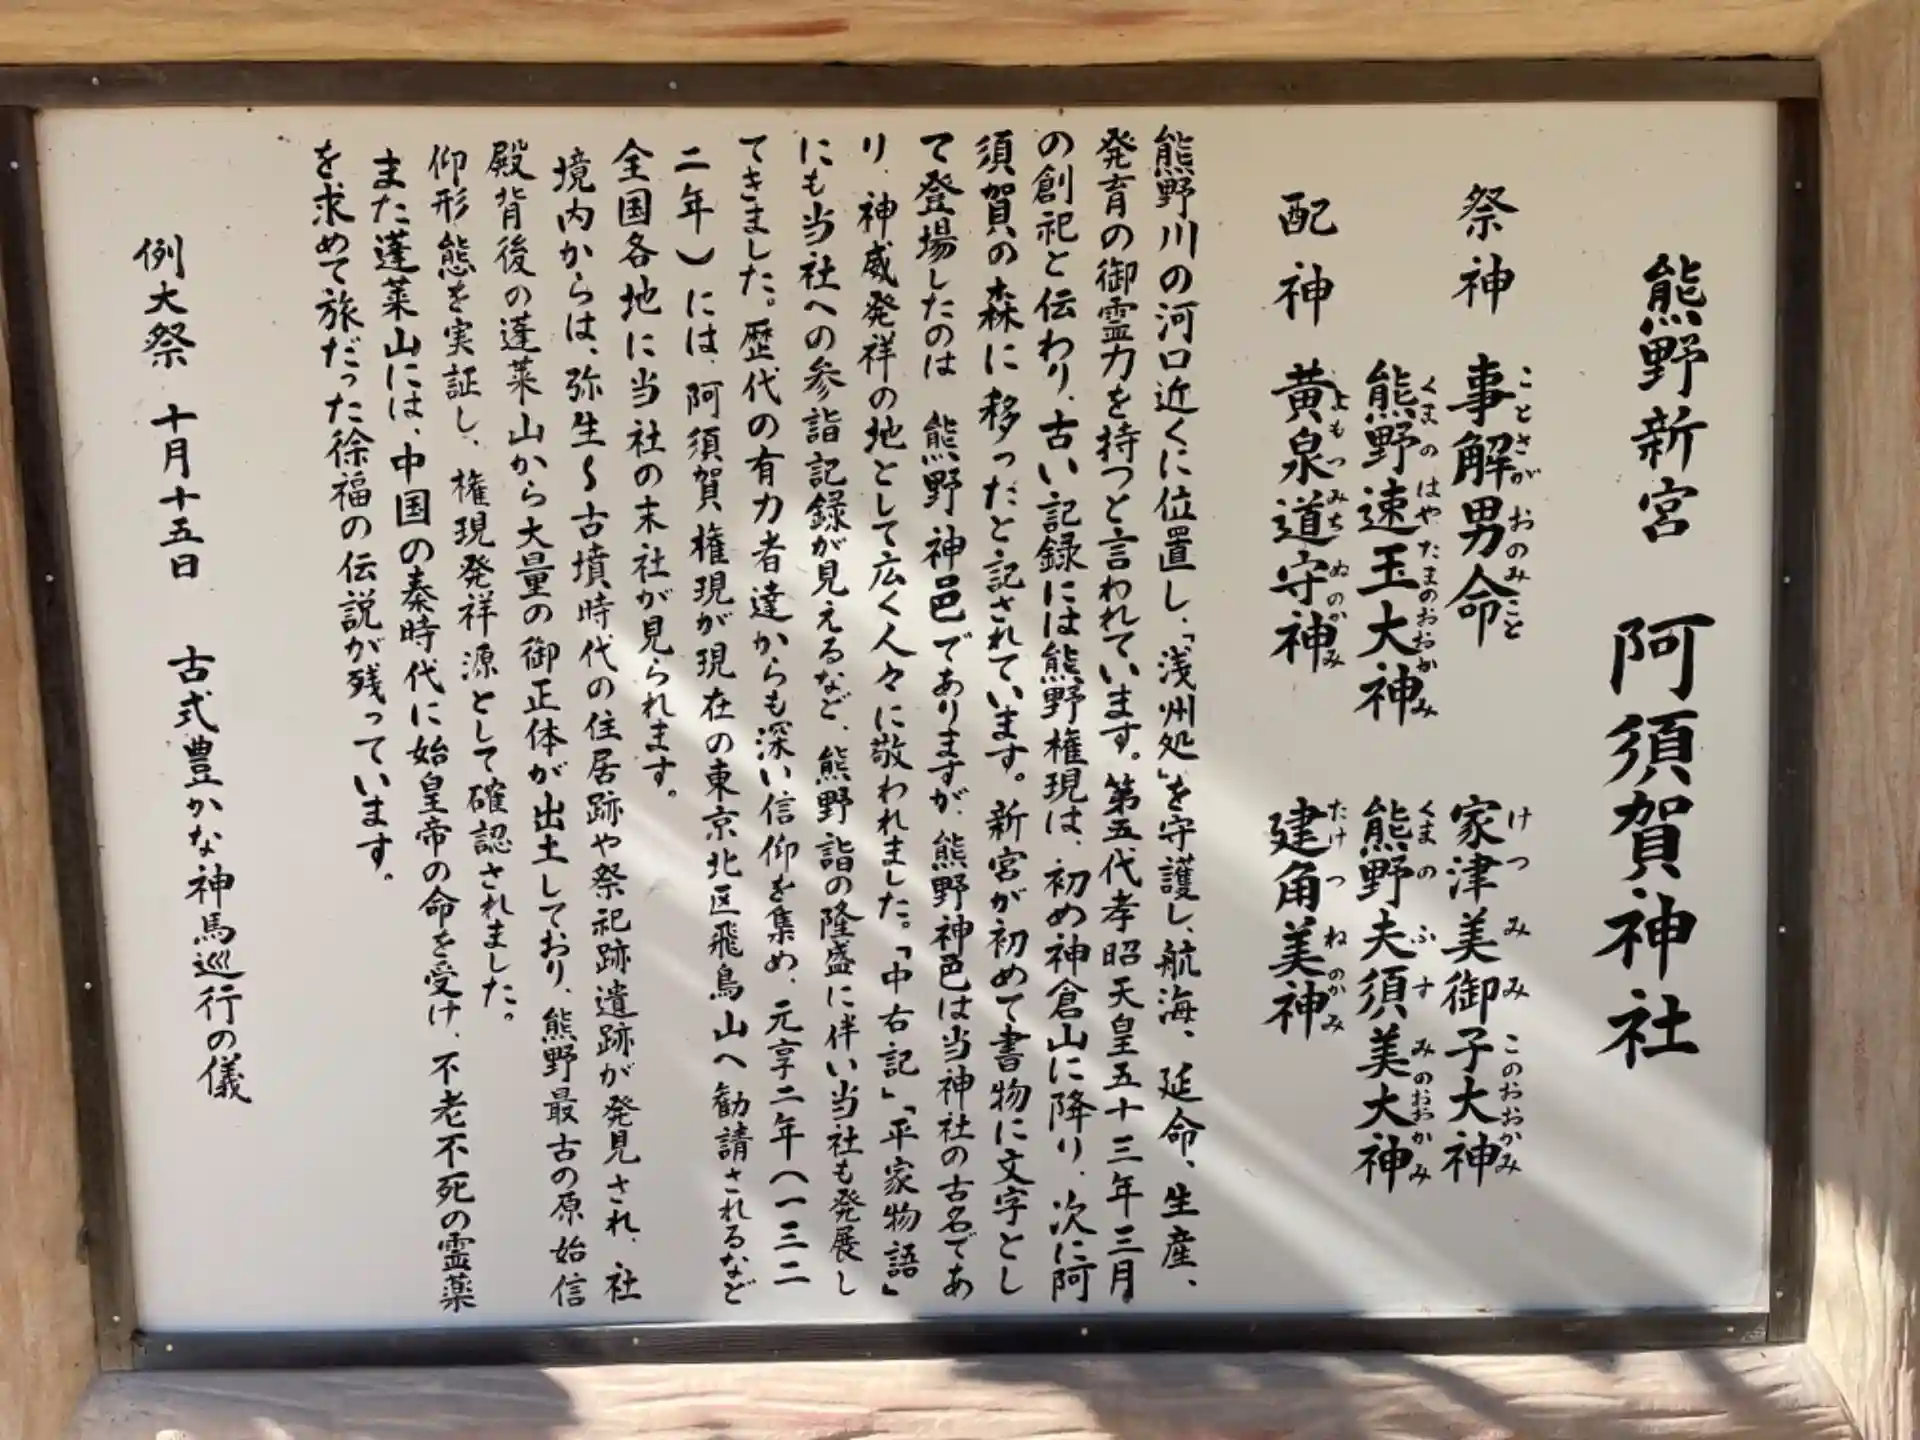 熊野新宮 阿須賀神社
祭神 事解男命 家津美御子大神
ことさか おのみこと けつみみこのおおかみ
熊野速玉大神 熊野夫須美大神
くまのはやたまのおおかみ くまのふすみのおおかみ
配神 黄泉道守神 建角美神
よもつみちぬのかみ たけつねのかみ
熊野川の河口近くに位置し、「浅州処」を守護し、航海、延命、生産、
発育の御霊力を持つと言われています。第五代孝昭天皇五十三年三月
の創祀と伝わり、古い記録には熊野権現は、初め神倉山に降り、次に阿
須賀の森に移ったと記されています。新宮が初めて書物に文字とし
て登場したのは 熊野神邑でありますが、熊野神邑は当神社の古名であ
り、神威発祥の地として広く人々に敬われました。「中右記」「平家物語」
にも当社への参詣記録が見えるなど、熊野詣の隆盛に伴い当社も発展し
てきました。歴代の有力者達からも深い信仰を集め、元享二年(一三二
二年)には、阿須賀権現が現在の東京北区飛鳥山へ勧請されるなど
全国各地に当社の末社が見られます。
境内からは、弥生〜古墳時代の住居跡や祭祀跡遺跡が発見され、社
殿背後の蓬莱山から大量の御正体が出土しており、熊野最古の原始信
仰形態を実証し、権現発祥源として確認されました。
また蓬莱山には、中国の秦時代に始皇帝の命を受け、不老不死の霊薬
を求めて旅だった徐福の伝説が残っています。
例大祭 十月十五日 古式豊かな神馬巡行の儀